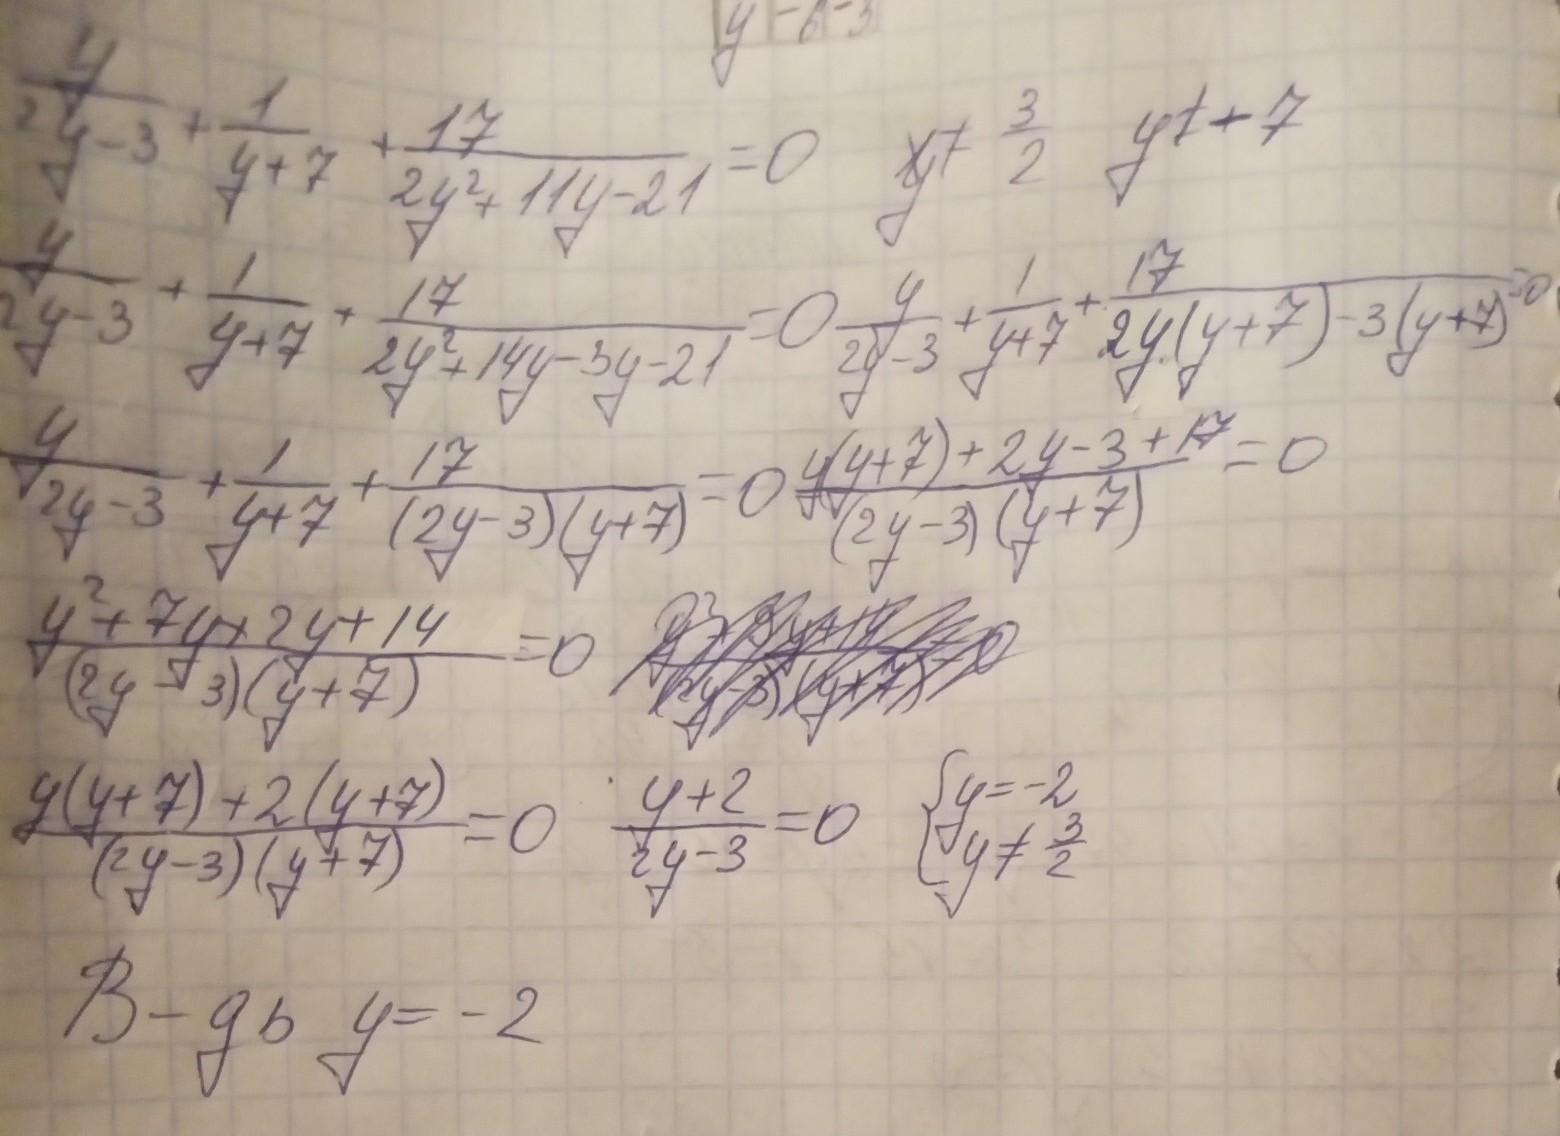 y-6-3
y/(2y-3) + 1/(y+7) + 17/(2y²+11y-21) = 0   y ≠ 3/2   y ≠ +7
y/(2y-3) + 1/(y+7) + 17/(2y²+14y-3y-21) = 0   y/(2y-3) + 1/(y+7) + 17/(2y(y+7)-3(y+7)) = 0
y/(2y-3) + 1/(y+7) + 17/((2y-3)(y+7)) = 0   (y(y+7)+2y-3+17)/((2y-3)(y+7)) = 0
(y²+7y+2y+14)/((2y-3)(y+7)) = 0
(y(y+7)+2(y+7))/((2y-3)(y+7)) = 0   (y+2)/(2y-3) = 0   { y = -2
y ≠ 3/2
В-дь y = -2